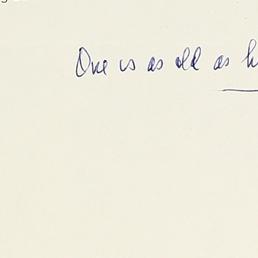 One is as old as h